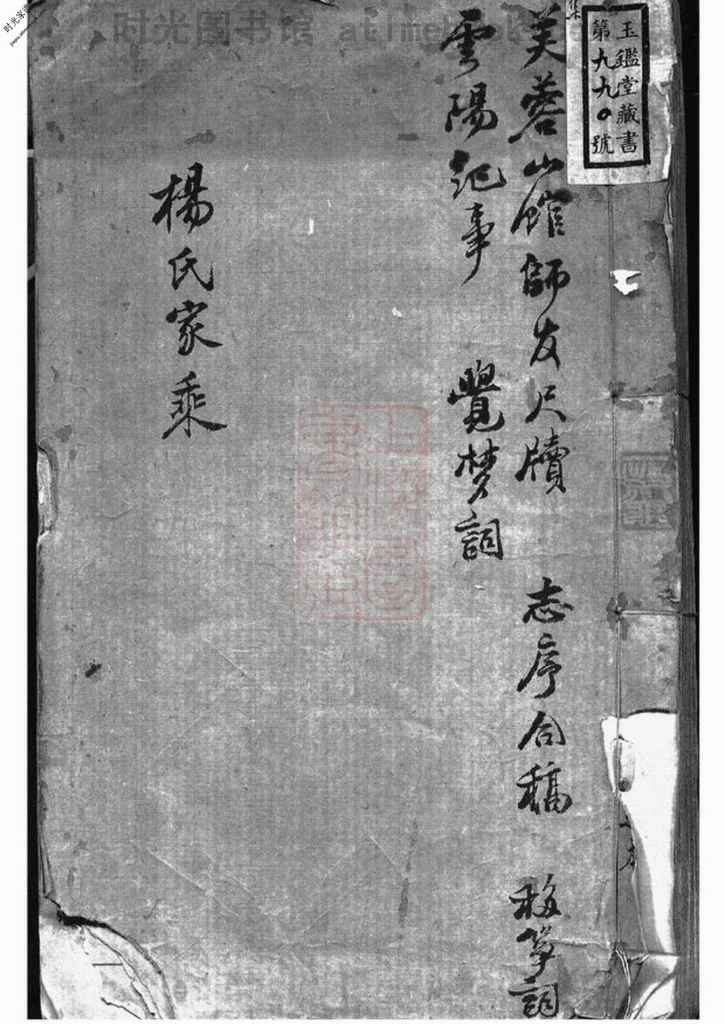 玉鑑堂藏書
第九九〇號
集
芙蓉山館師友尺牘 志序合稿 移箏詞
雲陽記事 覺梦詞
楊氏家乘
时光圖书馆